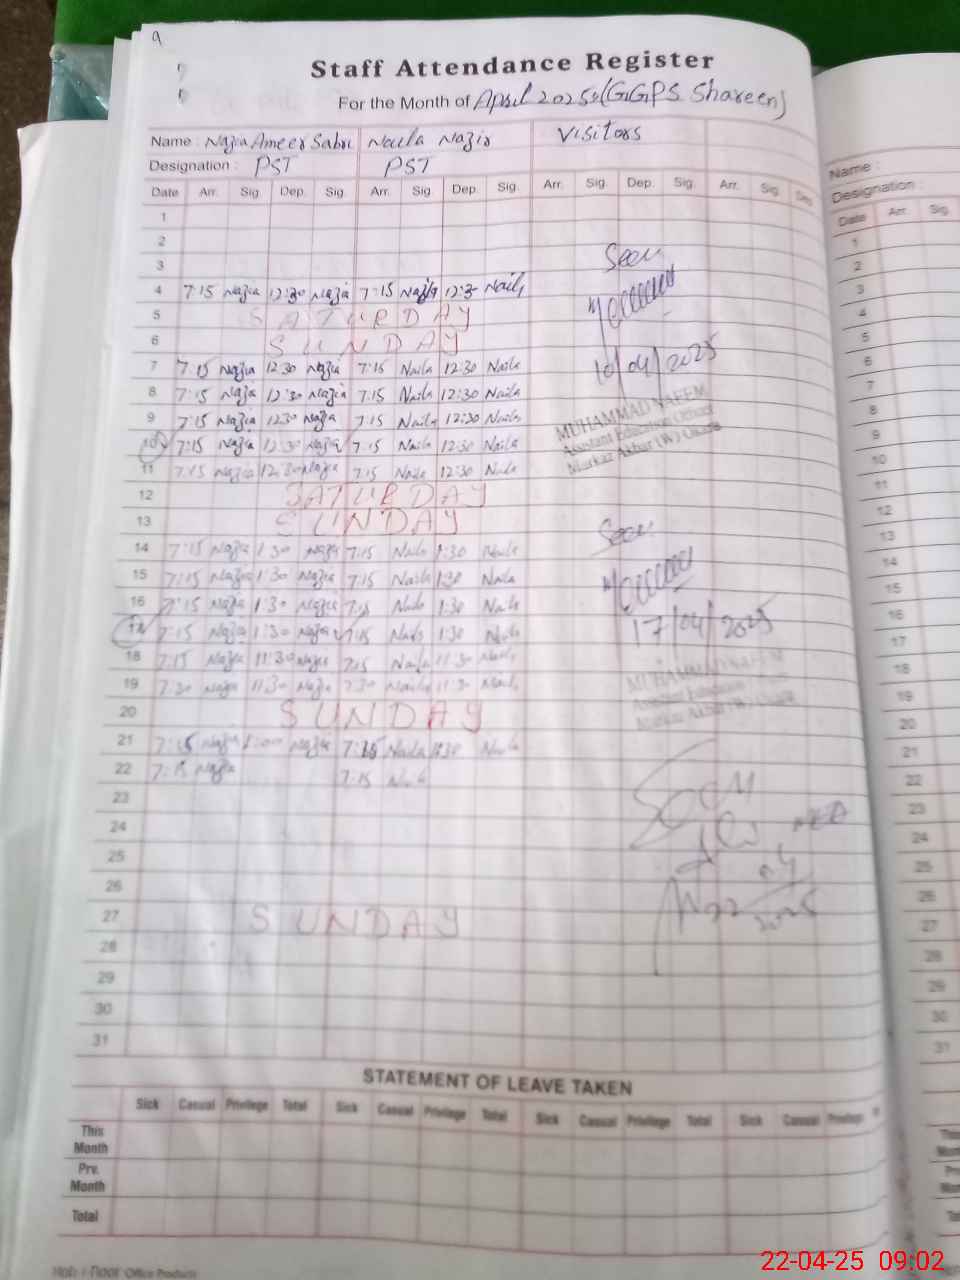 9
Staff Attendance Register
For the Month of April 2025 (GGPS Shareen)
Name : Nazia Ameer Sabri Naila Nazir Visitors
Designation : PST PST
Date Arr. Sig. Dep. Sig. Arr. Sig. Dep. Sig. Arr. Sig. Dep. Sig. Arr. Sig. Dep.
1
2
3
Seen
4 7:15 Nazia 12:30 Nazia 7:15 Naila 12:30 Naila
5 SATURDAY
6 SUNDAY
7 7:15 Nazia 12:30 Nazia 7:15 Naila 12:30 Naila
10/04/2025
8 7:15 Nazia 12:30 Nazia 7:15 Naila 12:30 Naila
9 7:15 Nazia 12:30 Nazia 7:15 Naila 12:30 Naila
MUHAMMAD NAEEM
Assistant Education Officer
Markaz Akbar (W) Okara
10 7:15 Nazia 12:30 Nazia 7:15 Naila 12:30 Naila
11 7:15 Nazia 12:30 Nazia 7:15 Naila 12:30 Naila
12 SATURDAY
13 SUNDAY
Seen
14 7:15 Nazia 1:30 Nazia 7:15 Naila 1:30 Naila
15 7:15 Nazia 1:30 Nazia 7:15 Naila 1:30 Naila
16 7:15 Nazia 1:30 Nazia 7:15 Naila 1:30 Naila
17/04/2025
17 7:15 Nazia 1:30 Nazia 7:15 Naila 1:30 Naila
18 7:15 Nazia 11:30 Nazia 7:15 Naila 11:30 Naila
MUHAMMAD NAEEM
Assistant Education
Markaz Akbar (W) Okara
19 7:30 Nazia 11:30 Nazia 7:30 Naila 11:30 Naila
20 SUNDAY
21 7:15 Nazia Nazia 7:15 Naila Naila
22 7:15 Nazia 7:15 Naila
Seen
23
24
25
26
27 SUNDAY
28
29
30
31
STATEMENT OF LEAVE TAKEN
Sick Casual Privilege Total Sick Casual Privilege Total Sick Casual Privilege Total Sick Casual Privilege
This Month
Prv. Month
Total
Office Products
Name :
Designation :
Date Arr. Sig.
1
2
3
4
5
6
7
8
9
10
11
12
13
14
15
16
17
18
19
20
21
22
23
24
25
26
27
28
29
30
31
22-04-25 09:02